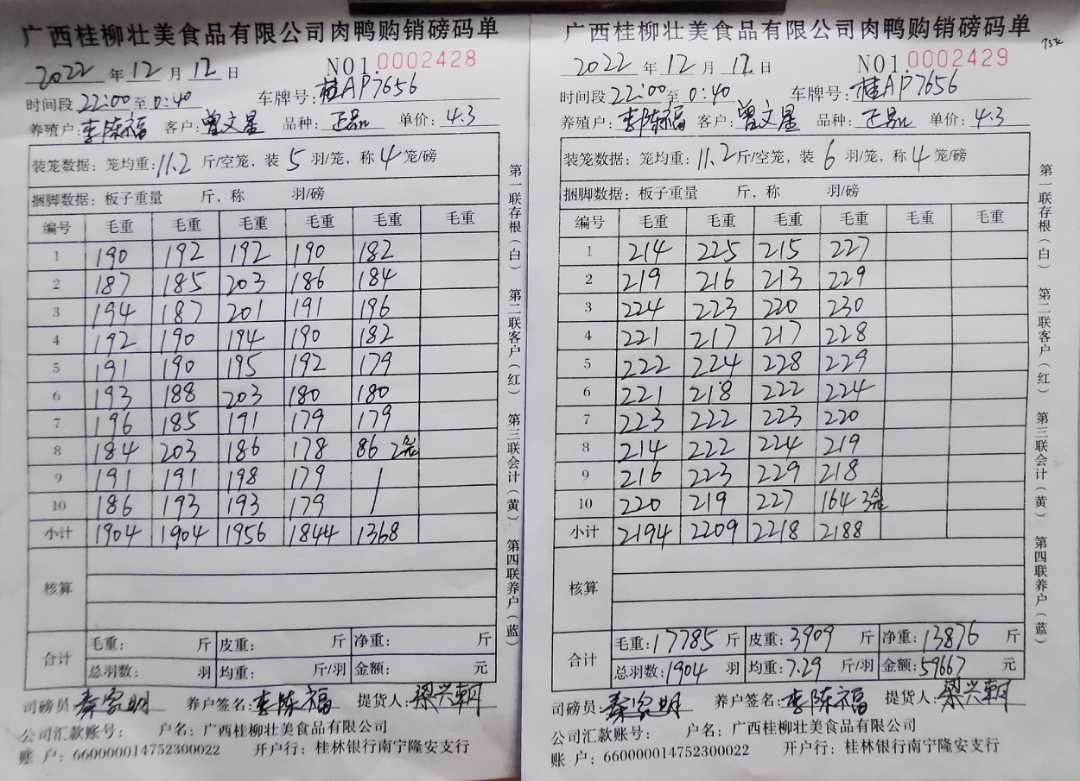 广西桂柳壮美食品有限公司肉鸭购销磅码单
2022 年 12 月 12 日 NO1 0002428
时间段 22:00 至 0:40 车牌号: 桂AP7656
养殖户: 李陈福 客户: 曾文星 品种: 正品 单价: 4.3
装笼数据: 笼均重: 11.2 斤/空笼, 装 5 羽/笼, 称 4 笼/磅
捆脚数据: 板子重量 斤, 称 羽/磅
编号 毛重 毛重 毛重 毛重 毛重 毛重
1 190 192 192 190 182
2 187 185 203 186 184
3 194 187 201 191 196
4 192 190 194 190 182
5 191 190 195 192 179
6 193 188 203 180 180
7 196 185 191 179 179
8 184 203 186 178 86 2笼
9 191 191 198 179 /
10 186 193 193 179 /
小计 1904 1904 1956 1844 1368
核算
合计 毛重: 斤 皮重: 斤 净重: 斤
总羽数: 羽 均重: 斤/羽 金额: 元
司磅员: 秦家明 养户签名: 李陈福 提货人: 梁兴朝
公司汇款账号: 户名: 广西桂柳壮美食品有限公司
账 户: 660000014752300022 开户行: 桂林银行南宁隆安支行
第一联存根(白) 第二联客户(红) 第三联会计(黄) 第四联养户(蓝)
广西桂柳壮美食品有限公司肉鸭购销磅码单
2022 年 12 月 12 日 NO1 0002429
时间段 22:00 至 0:40 车牌号: 桂AP7656
养殖户: 李陈福 客户: 曾文星 品种: 正品 单价: 4.3
装笼数据: 笼均重: 11.2 斤/空笼, 装 6 羽/笼, 称 4 笼/磅
捆脚数据: 板子重量 斤, 称 羽/磅
编号 毛重 毛重 毛重 毛重 毛重 毛重
1 214 225 215 227
2 219 216 213 229
3 224 223 220 230
4 221 217 217 228
5 222 224 228 229
6 221 218 222 224
7 223 222 223 220
8 214 222 224 219
9 216 223 229 218
10 220 219 227 164 3笼
小计 2194 2209 2218 2188
核算
合计 毛重: 17785 斤 皮重: 3909 斤 净重: 13876 斤
总羽数: 1904 羽 均重: 7.29 斤/羽 金额: 59667 元
司磅员: 秦家明 养户签名: 李陈福 提货人: 梁兴朝
公司汇款账号: 户名: 广西桂柳壮美食品有限公司
账 户: 660000014752300022 开户行: 桂林银行南宁隆安支行
第一联存根(白) 第二联客户(红) 第三联会计(黄) 第四联养户(蓝)